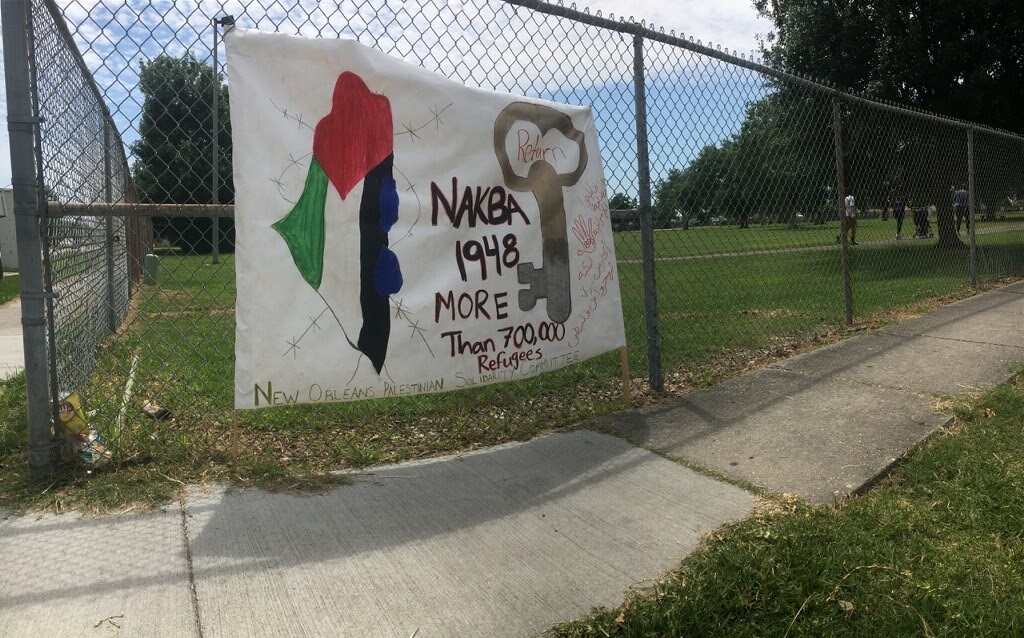 Return
NAKBA
1948
MORE
Than 700,000
Refugees
NEW ORLEANS PALESTINIAN SOLIDARITY COMMITTEE